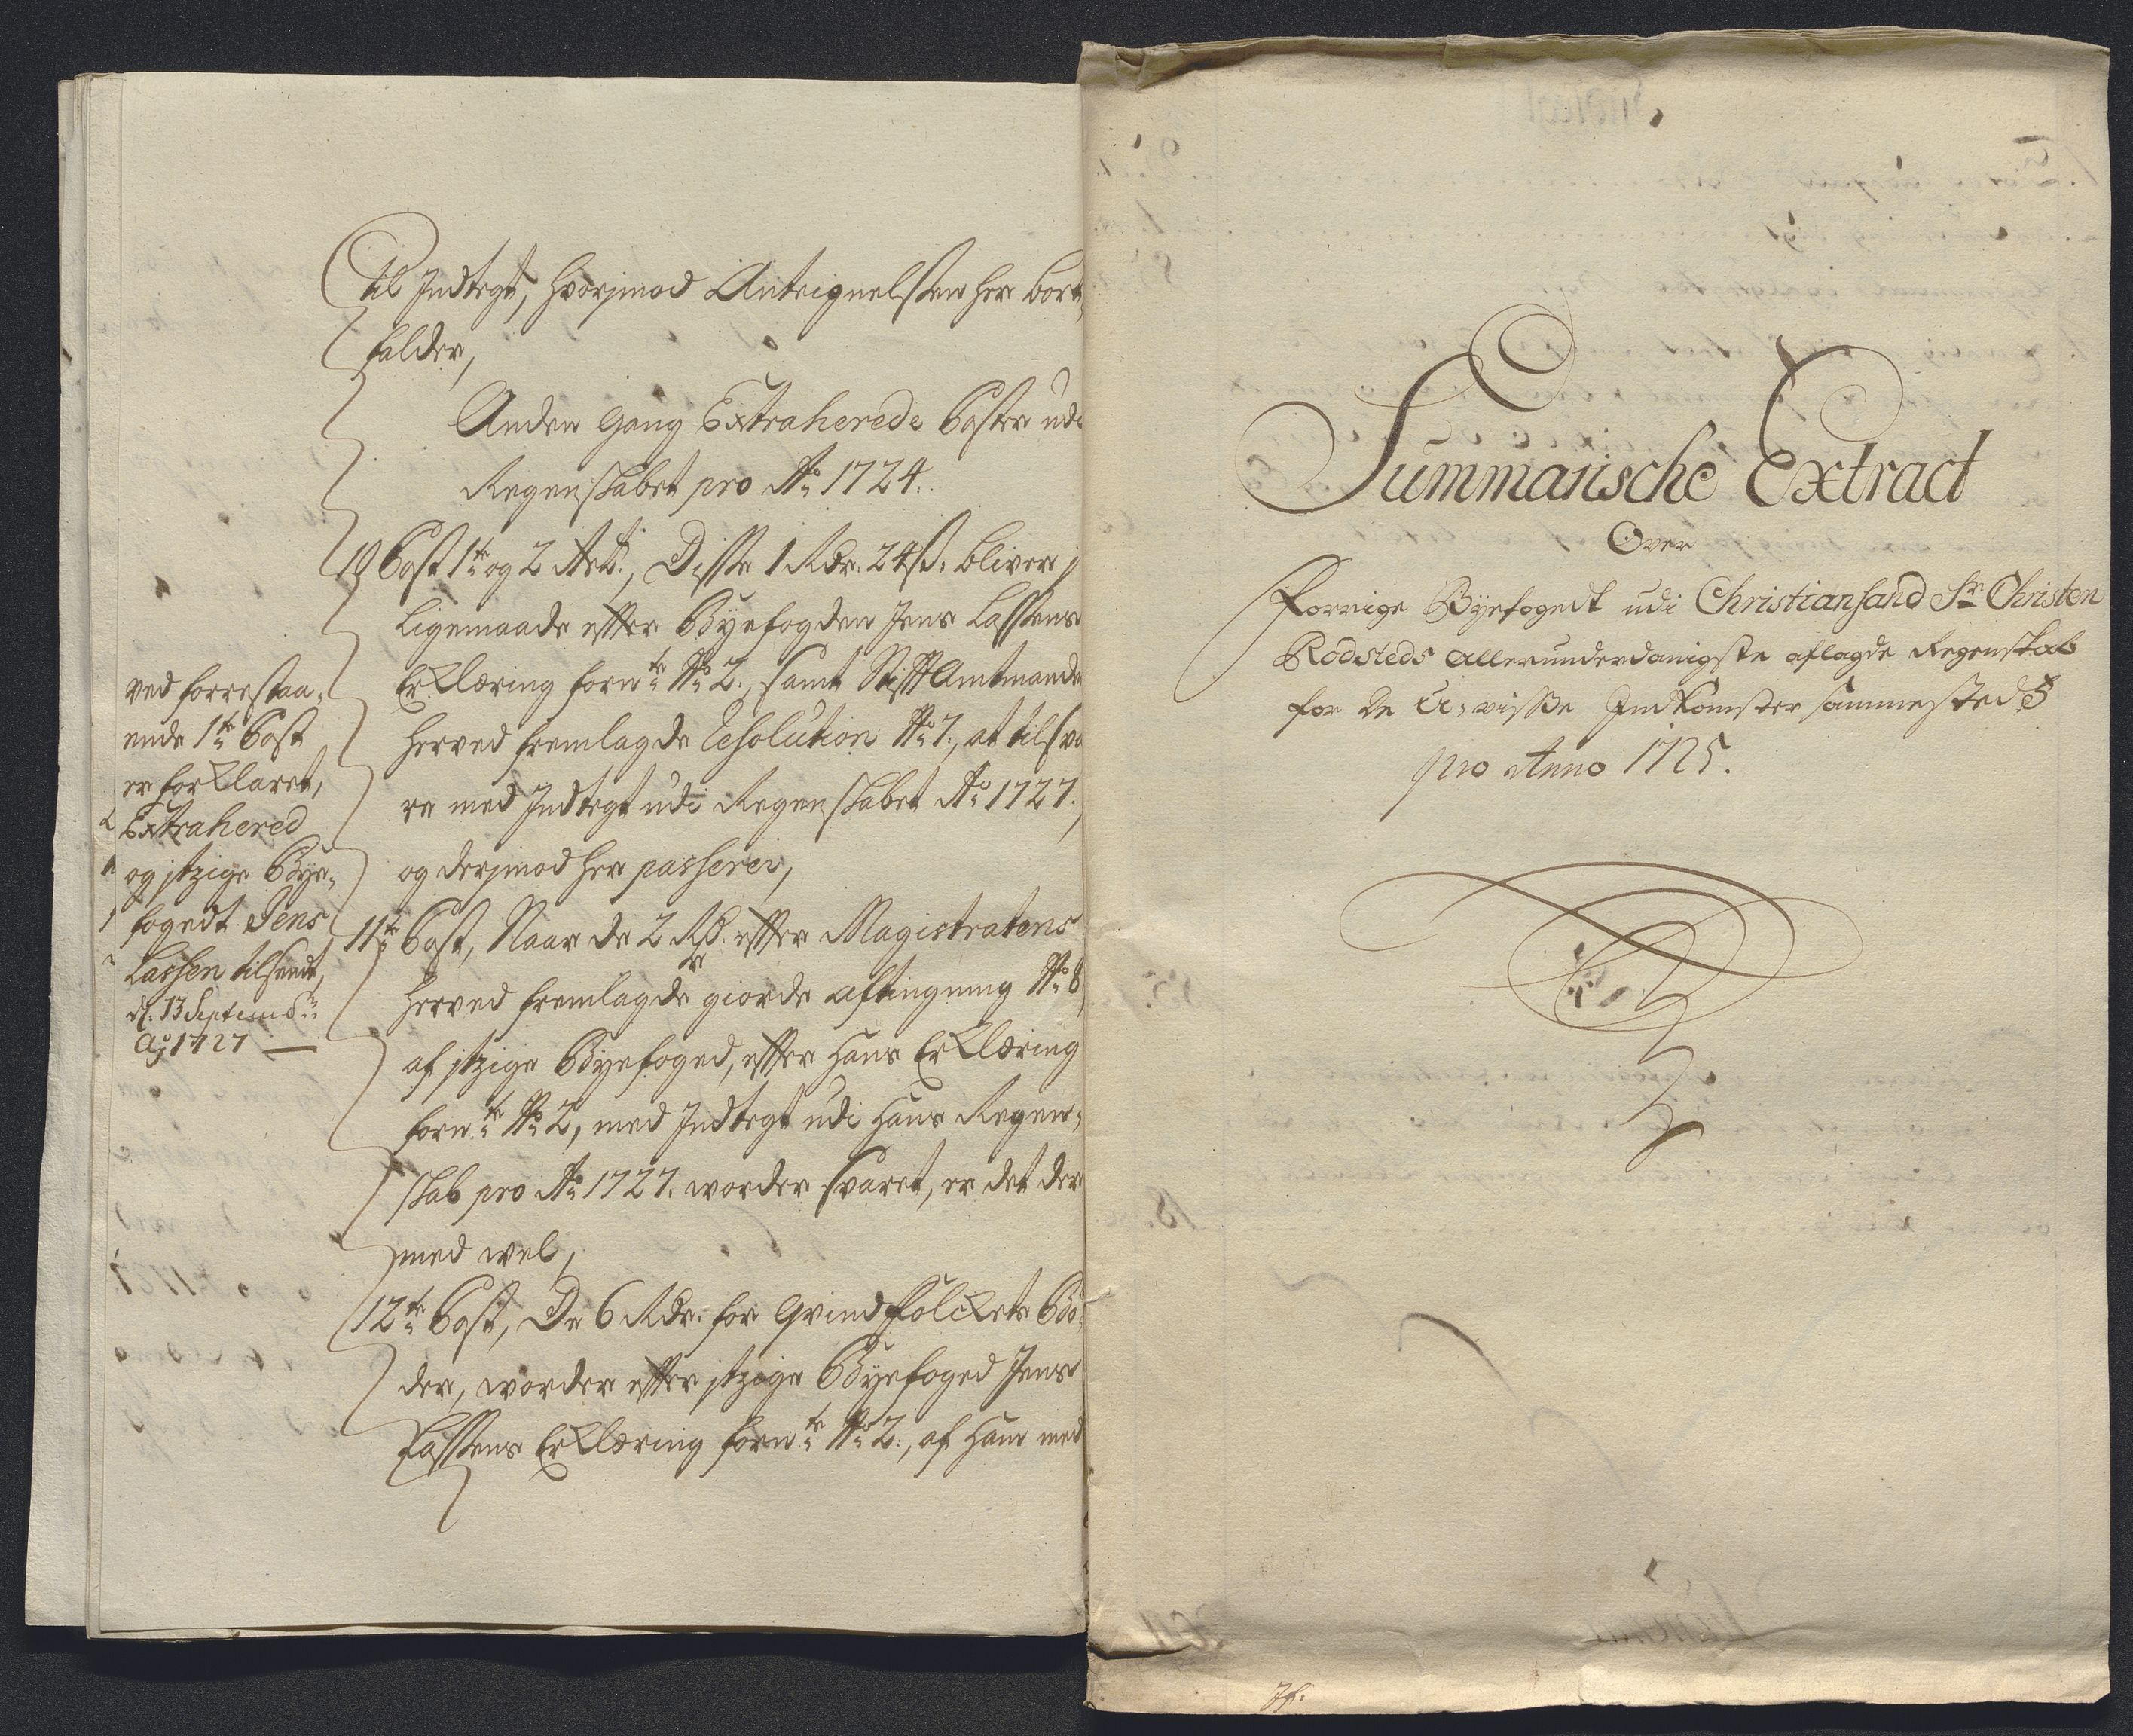 til Indtegt, hvorimod Anteignelssen her bort
falder,
Anden gang Extraherede Poster udi
Regenskabet pro Ao 1724.
10 Post 1te og 2 Art., Disse 1 Rdr. 24 s. bliver
ligemaade effter Byefogden Jens Lassens
Erklæring fornte No 2., samt Stifftamtmandens
herved fremlagde Resolution No 7., at tilsva
re med Indtegt udi Regenskabet Ao 1727.,
og derimod her passerer,
11te Post, Naar de 2 Rd. effter Magistratens
herved fremlagde giorde aftingning No 8
af itzige Byefoged, effter hans Erklæring
fornte No 2, med Indtegt udi hans Regen,
skab pro Ao 1727. worder svaret, er det der
med wel,
12te Post, De 6 Rdr. for Qvindfolckets Bø
der, worder effter itzige Byefoged Jens
Lassens Erklæring fornte No 2., af ham med
ved forrestaa,
ende 1te Post
er forklaret,
Extrahered
og itzige Bye,
fogedt Jens
Lassen tilsendt,
d. 13 Septembr
Ao 1727 —
Summarische Extract
Over
Forrige Byefogedt udi Christiansand Sr Christen
Rodsteds allerunderdanigste aflagde Regenskab
for de U,visse Indkomster sammesteds
pro Anno 1725.